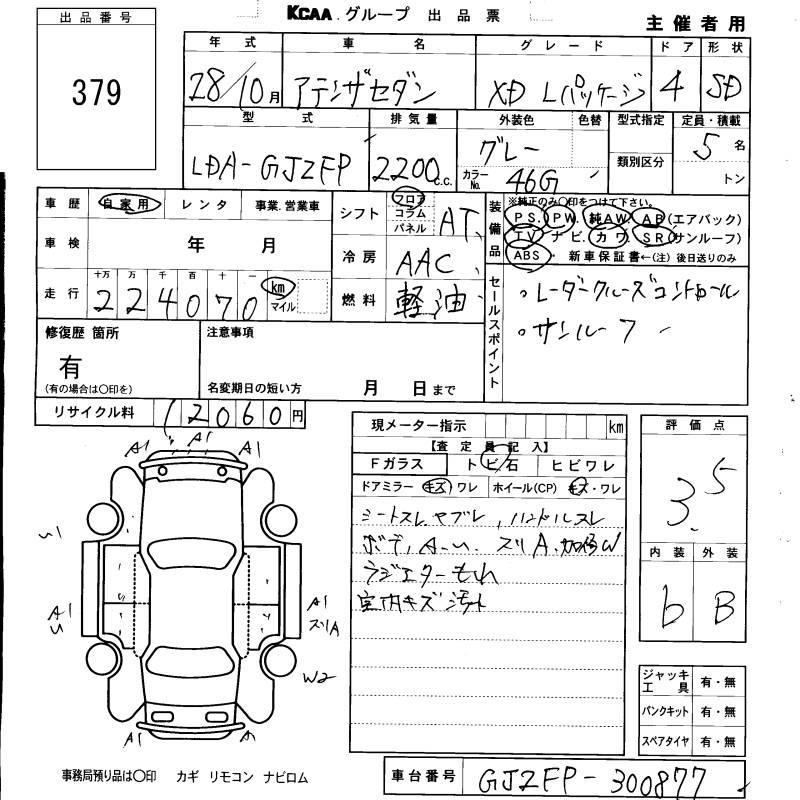 KCAA グループ 出品票
主催者用
出品番号
379
年式 車名 グレード ドア 形状
28/10月 アテンザセダン XD Lパッケージ 4 SD
型式 排気量 外装色 色替 型式指定 定員・積載
LDA-GJ2FP 2200c.c. グレー カラーNo. 46G 類別区分 5名 トン
車歴 自家用 レンタ 事業.営業車
車検 年 月
走行 十万 万 千 百 十 一
224070 km マイル
シフト フロア コラム パネル AT
冷房 AAC
燃料 軽油
装備品 ※純正のみ〇印をつけて下さい。
PS. PW. 純AW. AB(エアバック)
TV ナビ. カワ. SR(サンルーフ)
ABS ・ 新車保証書←(注) 後日送りのみ
セールスポイント
。レーダークルーズコントロール
。サンルーフ
修復歴 箇所
有
(有の場合は〇印を)
注意事項
名変期日の短い方 月 日まで
リサイクル料 12060円
現メーター指示 km
【査定員記入】
Fガラス トビ石 ヒビワレ
ドアミラー キズ ワレ ホイール(CP) キズ・ワレ
シートスレ ヤブレ, ハンドルスレ
ボディA.U. スリA.
ラジエターもれ
室内キズ 汚れ
評価点
3.5
内装 外装
b B
ジャッキ工具 有・無
パンクキット 有・無
スペアタイヤ 有・無
A1 A1 A1
U1
A1 U
A1 スリA
W2
A1 A1
事務局預り品は〇印 カギ リモコン ナビロム
車台番号 GJ2FP-300877